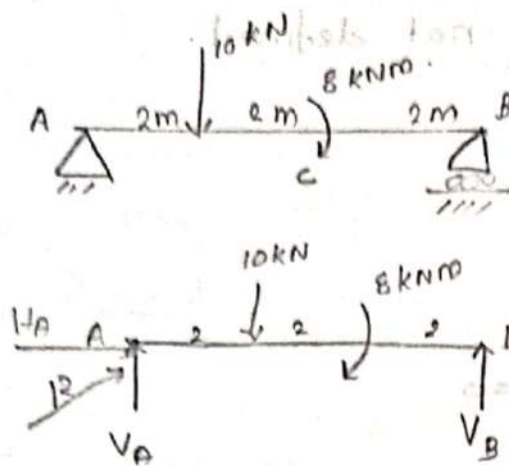 10 kN
8 kNm.
A 2m 2m 2m B
C
10kN
8 kNm
HA A 2 2 2
R
VA VB